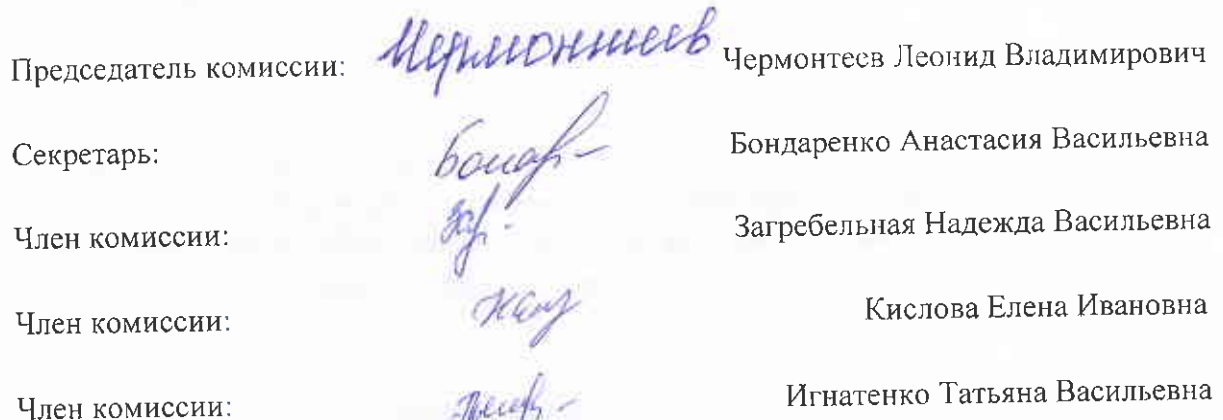 Председатель комиссии: Чермонтеев Чермонтеев Леонид Владимирович
Секретарь: Бондаренко Анастасия Васильевна
Член комиссии: Загребельная Надежда Васильевна
Член комиссии: Кислова Елена Ивановна
Член комиссии: Игнатенко Татьяна Васильевна